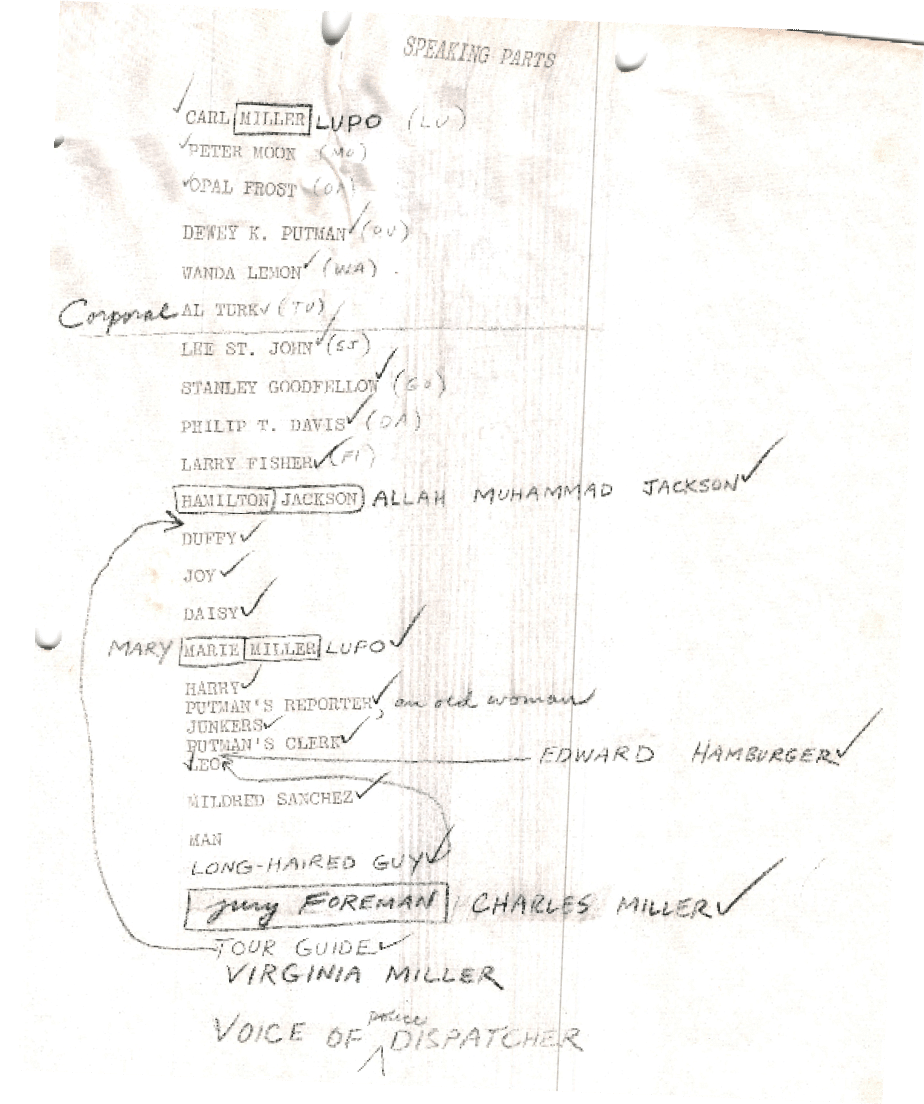 SPEAKING PARTS
CARL MILLER LUPO (LU)
PETER MOON (MO)
OPAL FROST
DEWEY K. PUTMAN
WANDA LEMON (WA)
Corporal AL TURK (TU)
LEE ST. JOHN (SJ)
STANLEY GOODFELLOW (GO)
PHILIP T. DAVIS (DA)
LARRY FISHER (FI)
HAMILTON JACKSON ALLAH MUHAMMAD JACKSON
DUFFY
JOY
DAISY
MARY MARIE MILLER LUPO
HARRY
PUTMAN'S REPORTER, an old woman
JUNKERS
PUTMAN'S CLERK
LEO EDWARD HAMBURGER
MILDRED SANCHEZ
MAN
LONG-HAIRED GUY
Jury FOREMAN CHARLES MILLER
TOUR GUIDE
VIRGINIA MILLER
VOICE OF police DISPATCHER